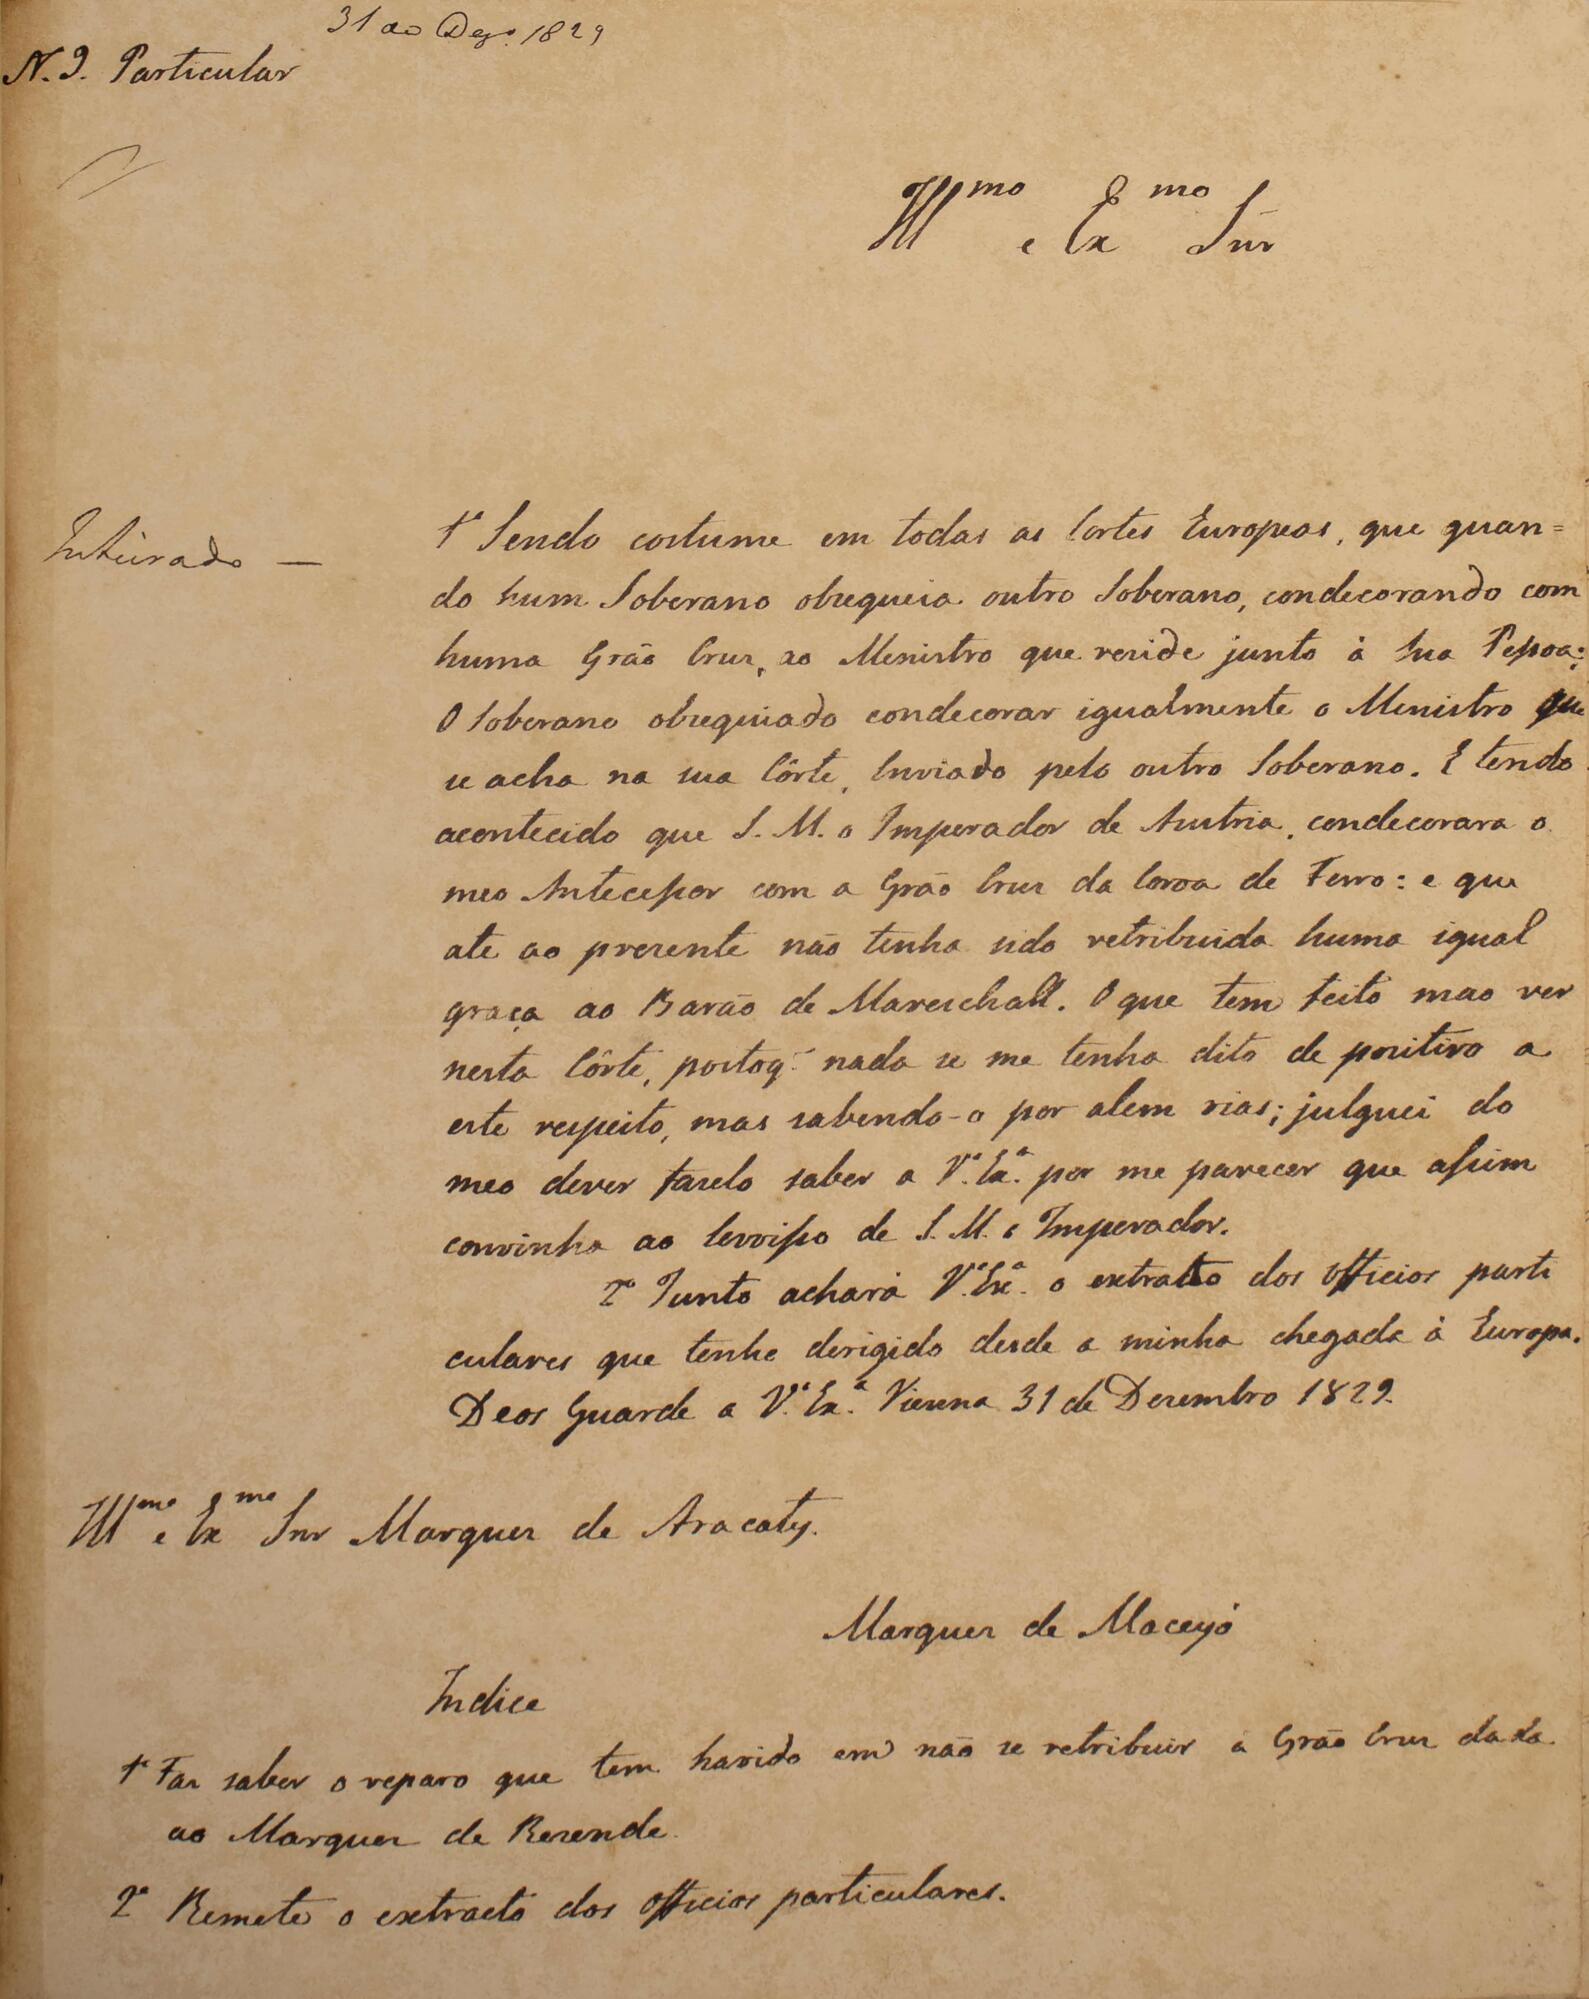 31 de Dezo. 1829
N. 9. Particular
Illmo e Exmo Snr
Inteirado —
1º Sendo costume em todas as Cortes Europeas, que quan=
do hum Soberano obzequeia outro Soberano, condecorando com
huma Grão Cruz, ao Menistro que reside junto à Sua Pessoa:
O Soberano obzequiado condecorar igualmente o Menistro que
se acha na sua Côrte, Enviado pelo outro Soberano. E tendo
acontecido que S. M. o Imperador de Austria, condecorara o
meo Antecessor com a Grão Cruz da Coroa de Ferro: e que
ate ao prezente não tenha sido retribuida huma igual
graça ao Barão de Mareschall. O que tem feito mao ver
nesta Côrte, postoq' nada se me tenha dito de pozitivo a
este respeito, mas sabendo-o por alem vias; julguei do
meo dever fazelo saber a Vª. Exª. por me parecer que assim
convinha ao Servisso de S. M. o Imperador.
2º Junto achará Vª. Exª. o extracto dos Officios parti
culares que tenho derigido desde a minha chegada à Europa.
Deos Guarde a Vª. Exª. Vienna 31 de Dezembro 1829.
Illmo e Exmo Snr Marquez de Aracaty.
Marquez de Maceyó
Indice
1º Faz saber o reparo que tem havido em não se retribuir a Grão Cruz dada
ao Marquez de Rezende.
2º Remete o extracto dos Officios particulares.